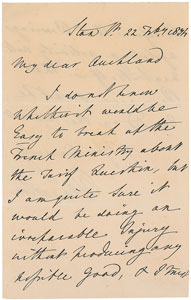 22 Feby
My dear Auckland
I do not know
whether it would be
Easy to break up the
French Ministry about
the Tariff Question, but
I am quite sure it
would be doing an
irreparable Injury
without producing any
possible good, & I must